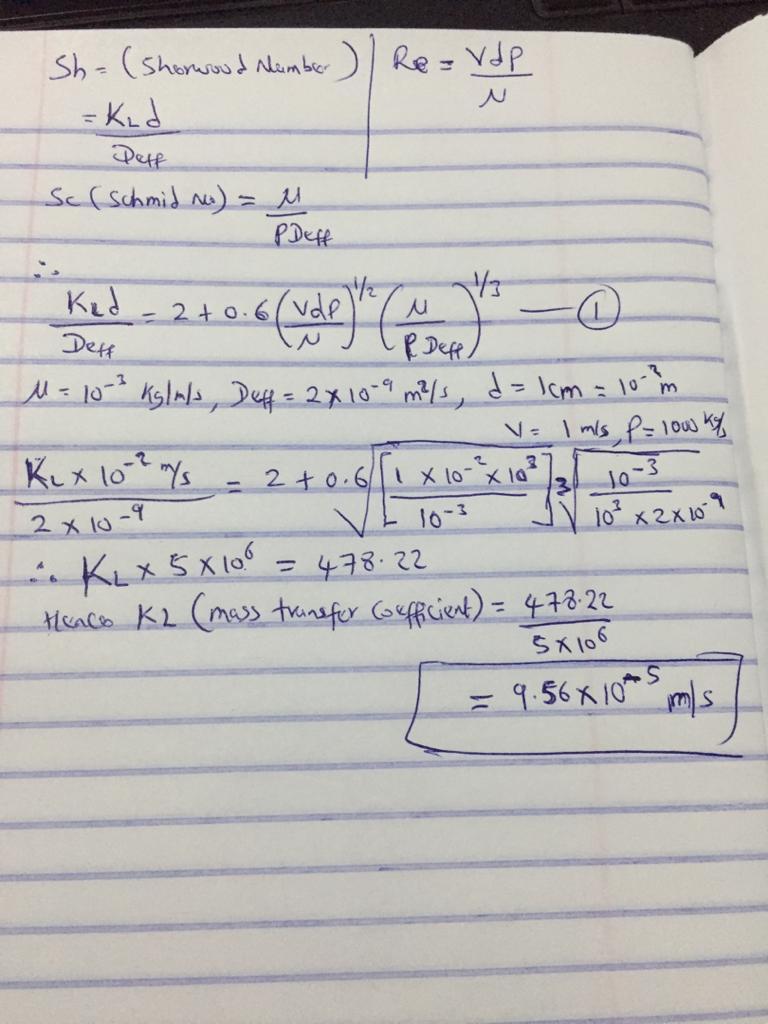 Sh = (Sherwood Number) | Re = Vdρ/μ
= KLd/Deff
Sc (Schmid No) = μ/ρDeff
∴
KLd/Deff = 2 + 0.6 (Vdρ/μ)^1/2 (μ/ρDeff)^1/3 — ①
μ = 10^-3 Kg/m/s, Deff = 2×10^-9 m²/s, d = 1cm = 10^-2 m
V = 1 m/s, ρ = 1000 kg/
KL × 10^-2 m/s / 2 × 10^-9 = 2 + 0.6 √[1 × 10^-2 × 10^3 / 10^-3] ∛(10^-3 / 10^3 × 2×10^-9)
∴ KL × 5×10^6 = 478.22
Hence KL (mass transfer Coefficient) = 478.22 / 5×10^6
= 9.56×10^-5 m/s